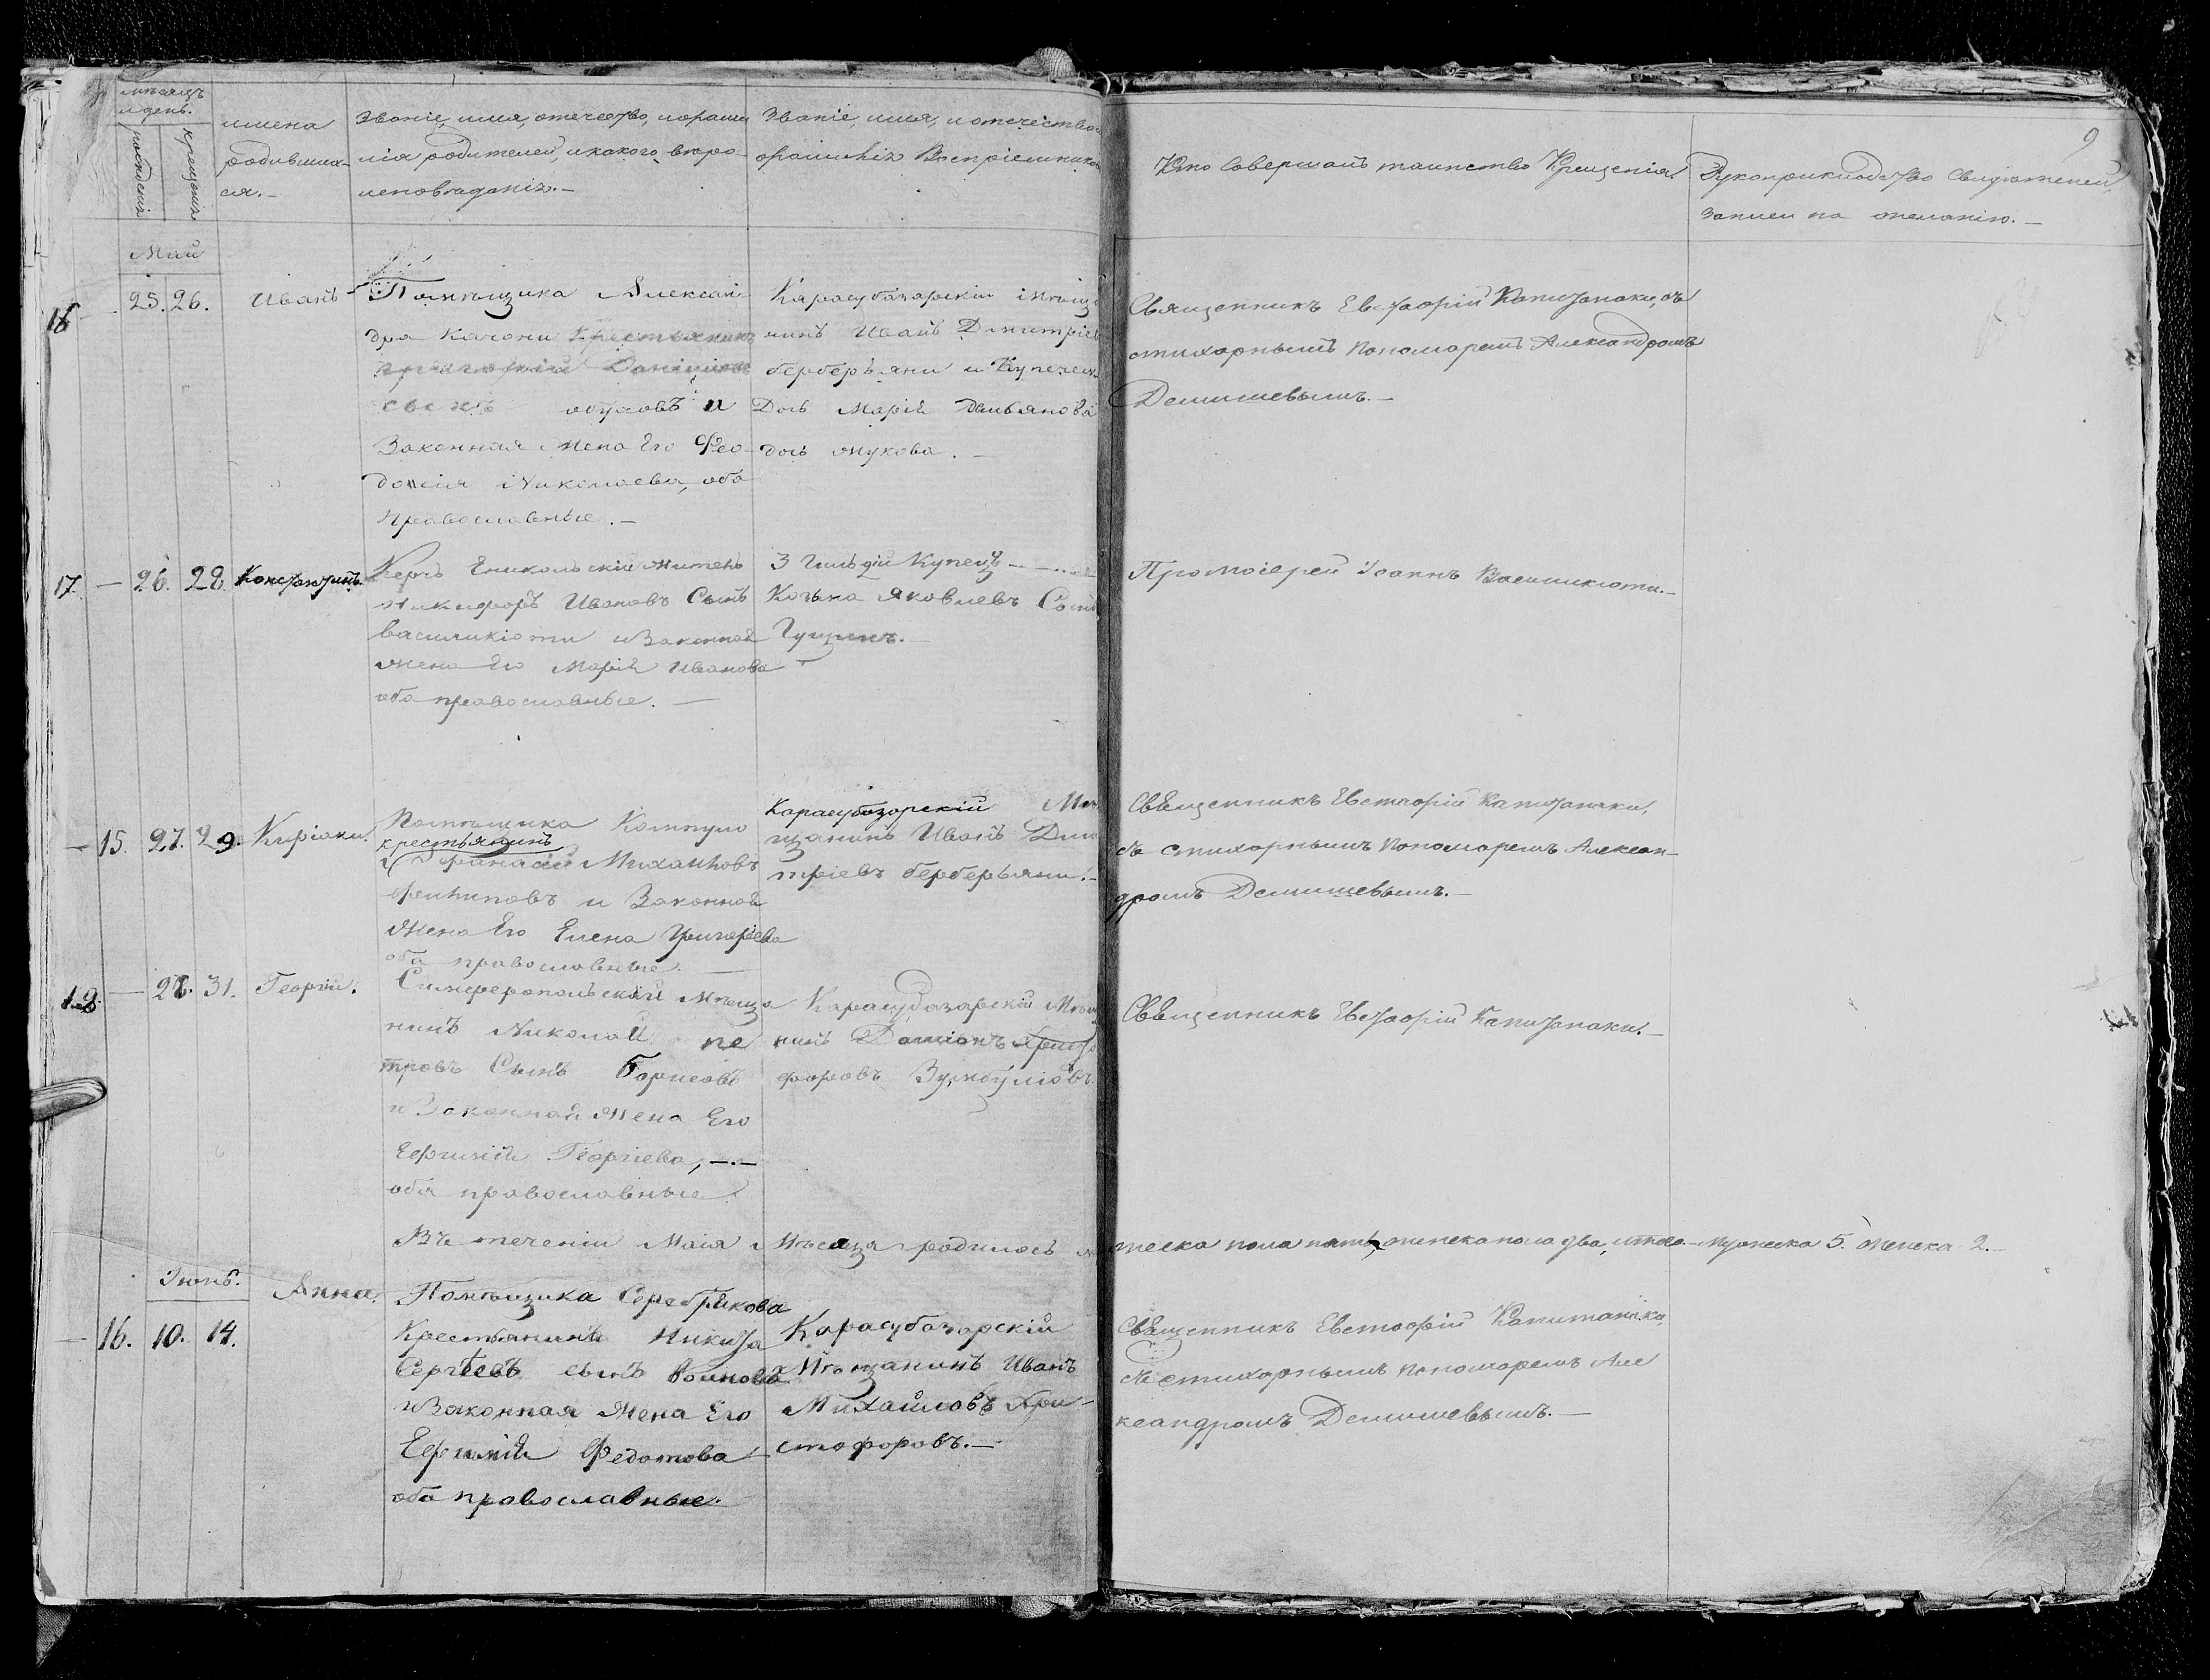 мѣсяцъ
и день.
рожденія
крещенія
имена
родивших-
ся.-
Званіе, имя, отечество, и фами
лія родителей, и какого вѣро-
исповѣданія.-
Званіе, имя, и отечество
фамилія Воспріемников
Кто совершалъ таинство Крещенія.
Рукоприкладство Свидѣтелей
записи по желанію.-
9
Май
16
25. 26.
Иванъ
Помѣщика Алексан
дра Качони Крестьянинъ
Григорій Даніиловъ
сынъ обуховъ и
Законная Жена Его Фео
досія Николаева, оба
православные.-
Карасубазарскій Мѣща
нинъ Иванъ Дмитріев
берберьяни и Купечес
Дочь Марія Демьянова
дочь Жукова.-
Священникъ Евстафій Капитанаки, съ
стихарнымъ пономаремъ Александромъ
Демишевымъ.-
17. - 26. 28.
Константинъ
Керчь Еникольскій житель
Никифоръ Ивановъ Сынъ
василикіоти и Законной
Жена Его Марія Иванова
оба православные.-
3 Гильдій Купецъ
Козьма Яковлевъ Сынъ
Гущинъ.-
Протоіерей Іоаннъ Василикіоти.-
- 15. 27. 29.
Киріаки.
Помѣщика
крестьянинъ
Афанасій Михаиловъ
филиповъ и Законной
Жена Его Елена Григорьева
оба православные.-
Карасубазорскій Мѣ
щанинъ Иванъ Дми
тріевъ берберьяни.-
Священникъ Евстафій Капитанаки,
съ стихарнымъ пономаремъ Алексан-
дромъ Демишевымъ.-
18. - 28. 31.
Георгій.
Симферопольскій Мѣща
нинъ Николай пе
тровъ Сынъ Борисовъ
и Законной Жена Его
Ефимія Георгіева,
оба православные.
Карасубазарскій Мѣща
нинъ Даміонъ Христо
форовъ
Священникъ Евстафій Капитанаки.-
Въ теченіи Маія Мѣсяца родилось
жеска пола пять, женска пола два, итого мужеска 5. женска 2.-
Іюнь.
- 16. 10. 14.
Анна.
Помѣщика Серебрякова
Крестьянинъ Никита
Сергѣевъ сынъ
и Законная Жена Его
Ефимія Федотова
оба православные.
Карасубазарскій
Мѣщанинъ Иванъ
Михайловъ Хри-
стофоровъ.-
Священникъ Евстафій Капитанаки,
съ стихарнымъ пономаремъ Але
ксандромъ Демишевымъ.-